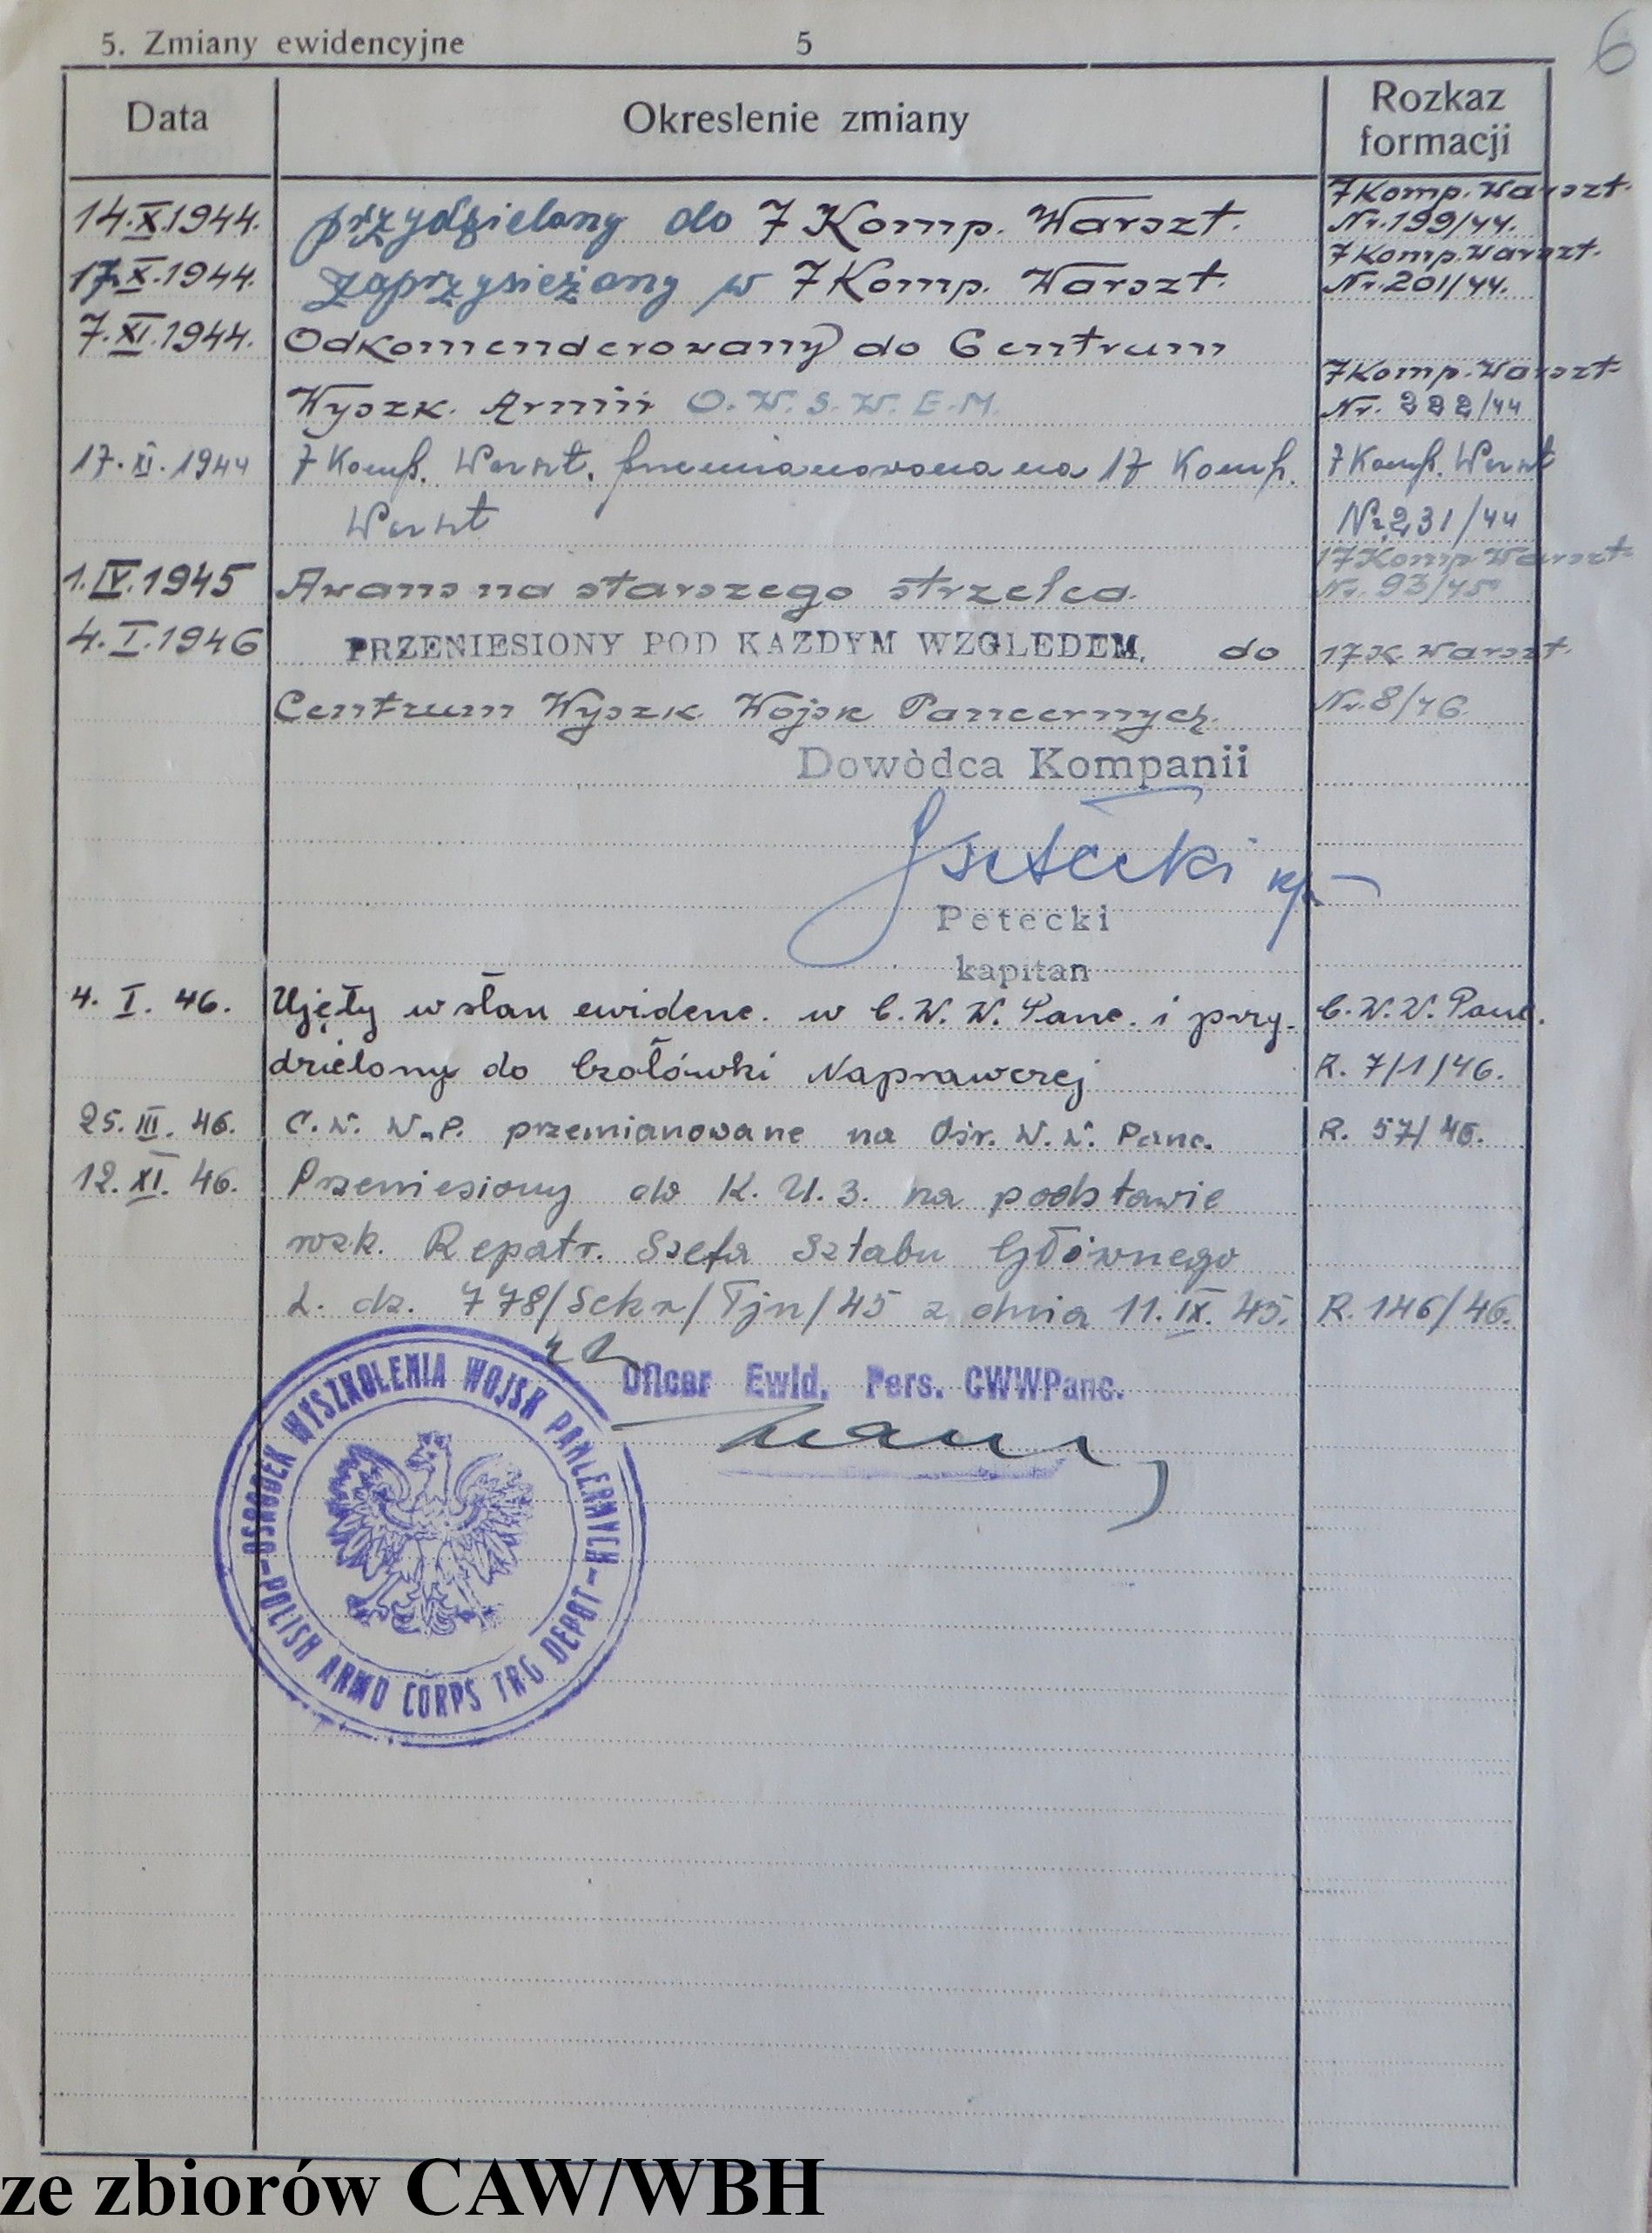 5. Zmiany ewidencyjne 5 6
Data Okreslenie zmiany Rozkaz formacji
14.X.1944. przydzielony do 7 Komp. Warszt. 7 Komp. Warszt. Nr. 199/44.
17.X.1944. zaprzysieżony w 7 Komp. Warszt. 7 Komp. Warszt. Nr. 201/44.
7.XI.1944. Odkomenderowany do Centrum
Wyszk. Armii O.W.S.W.E.M. 7 Komp. Warszt. Nr. 222/44
17.XI.1944 7 Komp. Warszt. przemianowana na 17 Komp. 7 Komp. Warszt
Warszt Nr. 231/44
1.IV.1945 Awans na starszego strzelca. 17 Komp Warszt Nr. 93/45
4.I.1946 PRZENIESIONY POD KAZDYM WZGLEDEM, do 17 K. Warszt.
Centrum Wyszk. Wojsk Pancernych. Nr. 8/46.
Dowòdca Kompanii
Petecki kpt
Petecki
kapitan
4. I. 46. Ujęty w stan ewidenc. w C.W.W. Panc. i przy- C.W.W. Panc.
dzielony do Czołówki Naprawczej R. 7/1/46.
25. III. 46. C.W.W.P. przemianowane na Ośr. W.W. Panc. R. 57/46.
12. XI. 46. Przeniesiony do K.U.3. na podstawie
rozk. Repatr. Szefa Sztabu Głównego
L. dz. 778/Sekr/Tjn/45 z dnia 11.IX.45. R. 146/46.
Oficer Ewid. Pers. CWWPanc.
OŚRODEK WYSZKOLENIA WOJSK PANCERNYCH
POLISH ARMD CORPS TRG DEPOT
ze zbiorów CAW/WBH